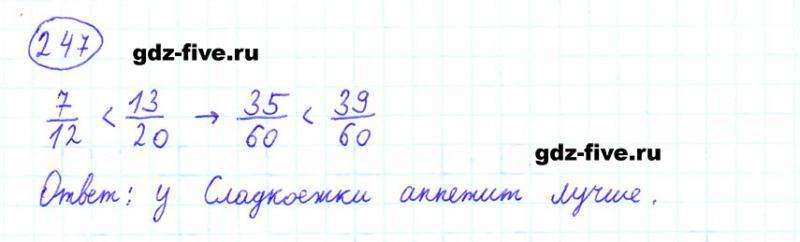 247 gdz-five.ru
7/12 < 13/20 → 35/60 < 39/60
gdz-five.ru
Ответ: у Сладкоежки аппетит лучше.